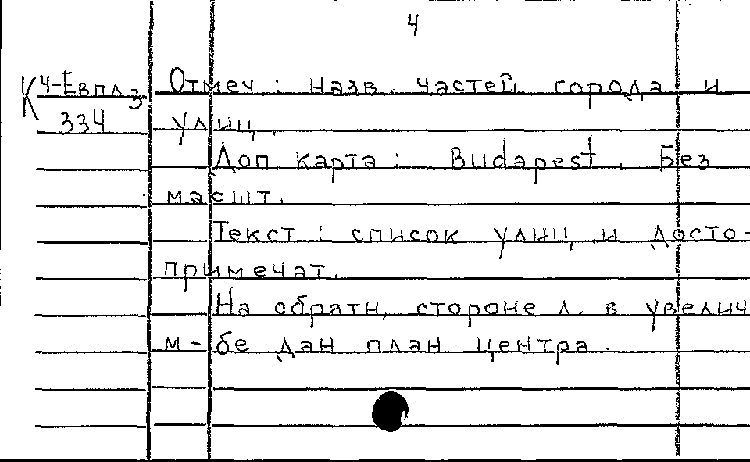 4
К 4-Евпл3
334
Отмеч.: назв. частей города и
улиц.
Доп карта: Budapest. Без
масшт.
Текст: список улиц и досто-
примечат.
На обратн. стороне л. в увелич
м-бе дан план центра.